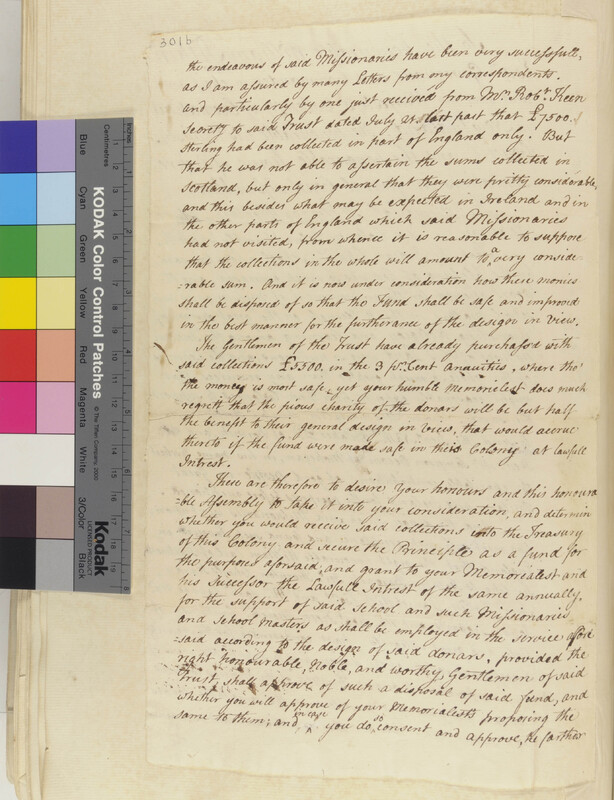 301b
the endeavours of said Missionaries have been very successfull,
as I am assured by many Letters from my correspondents.
and particularly by one just recieved from Mr. Robt. Keen
Secrety to said Trust dated July 21 last past that £7500.
sterling had been collected in part of England only. But
that he was not able to assertain the sums collected in
Scotland, but only in general that they were prittty considerable,
and this besides what may be expected in Ireland and in
the other parts of England which said Missionaries
had not visited, from whence it is reasonable to suppose
that the collections in the whole will amount to a very conside-
=rable sum. And it is now under consideration how these monies
shall be disposed of so that the Fund shall be safe and improved
in the best manner for the furtherance of the design in view.
The Gentlemen of the Trust have already purchased with
said collections £5500. in the 3 pr. Cent anuities, where tho'
the money is most safe, yet your humble Memorialest does much
regrett that the pious charity of the donars will be but half
the benefit to their general design in view, that would accrue
thereto if the fund were made safe in this Colony at lawfull
Intrest.
These are therefore to desire your honours and this honoura
=ble Assembly to take it into your consideration, and determin
whether you would receive said collections into the Treasury
of this Colony and secure the Principle as a fund for
the purpose aforsaid, and grant to your Memorialest and
his Successor the Lawfull Intrest of the same annually.
for the support of said School and such Missionaries
and School Masters as shall be employed in the Service afore
=said according to the design of said donars, provided the
right honourable, Noble, and worthy Gentlemen of said
Trust, shall approve of such a disposal of said fund, and
whether you will approve of your Memorialests proposing the
same to them; and in case you do so consent and approve, he farther
Inches
Centimetres
1 2 3 4 5 6 7 8
1 2 3 4 5 6 7 8 9 10 11 12 13 14 15 16 17 18 19
KODAK Color Control Patches
© The Tiffen Company, 2000
Kodak
LICENSED PRODUCT
Blue
Cyan
Green
Yellow
Red
Magenta
White
3/Color
Black